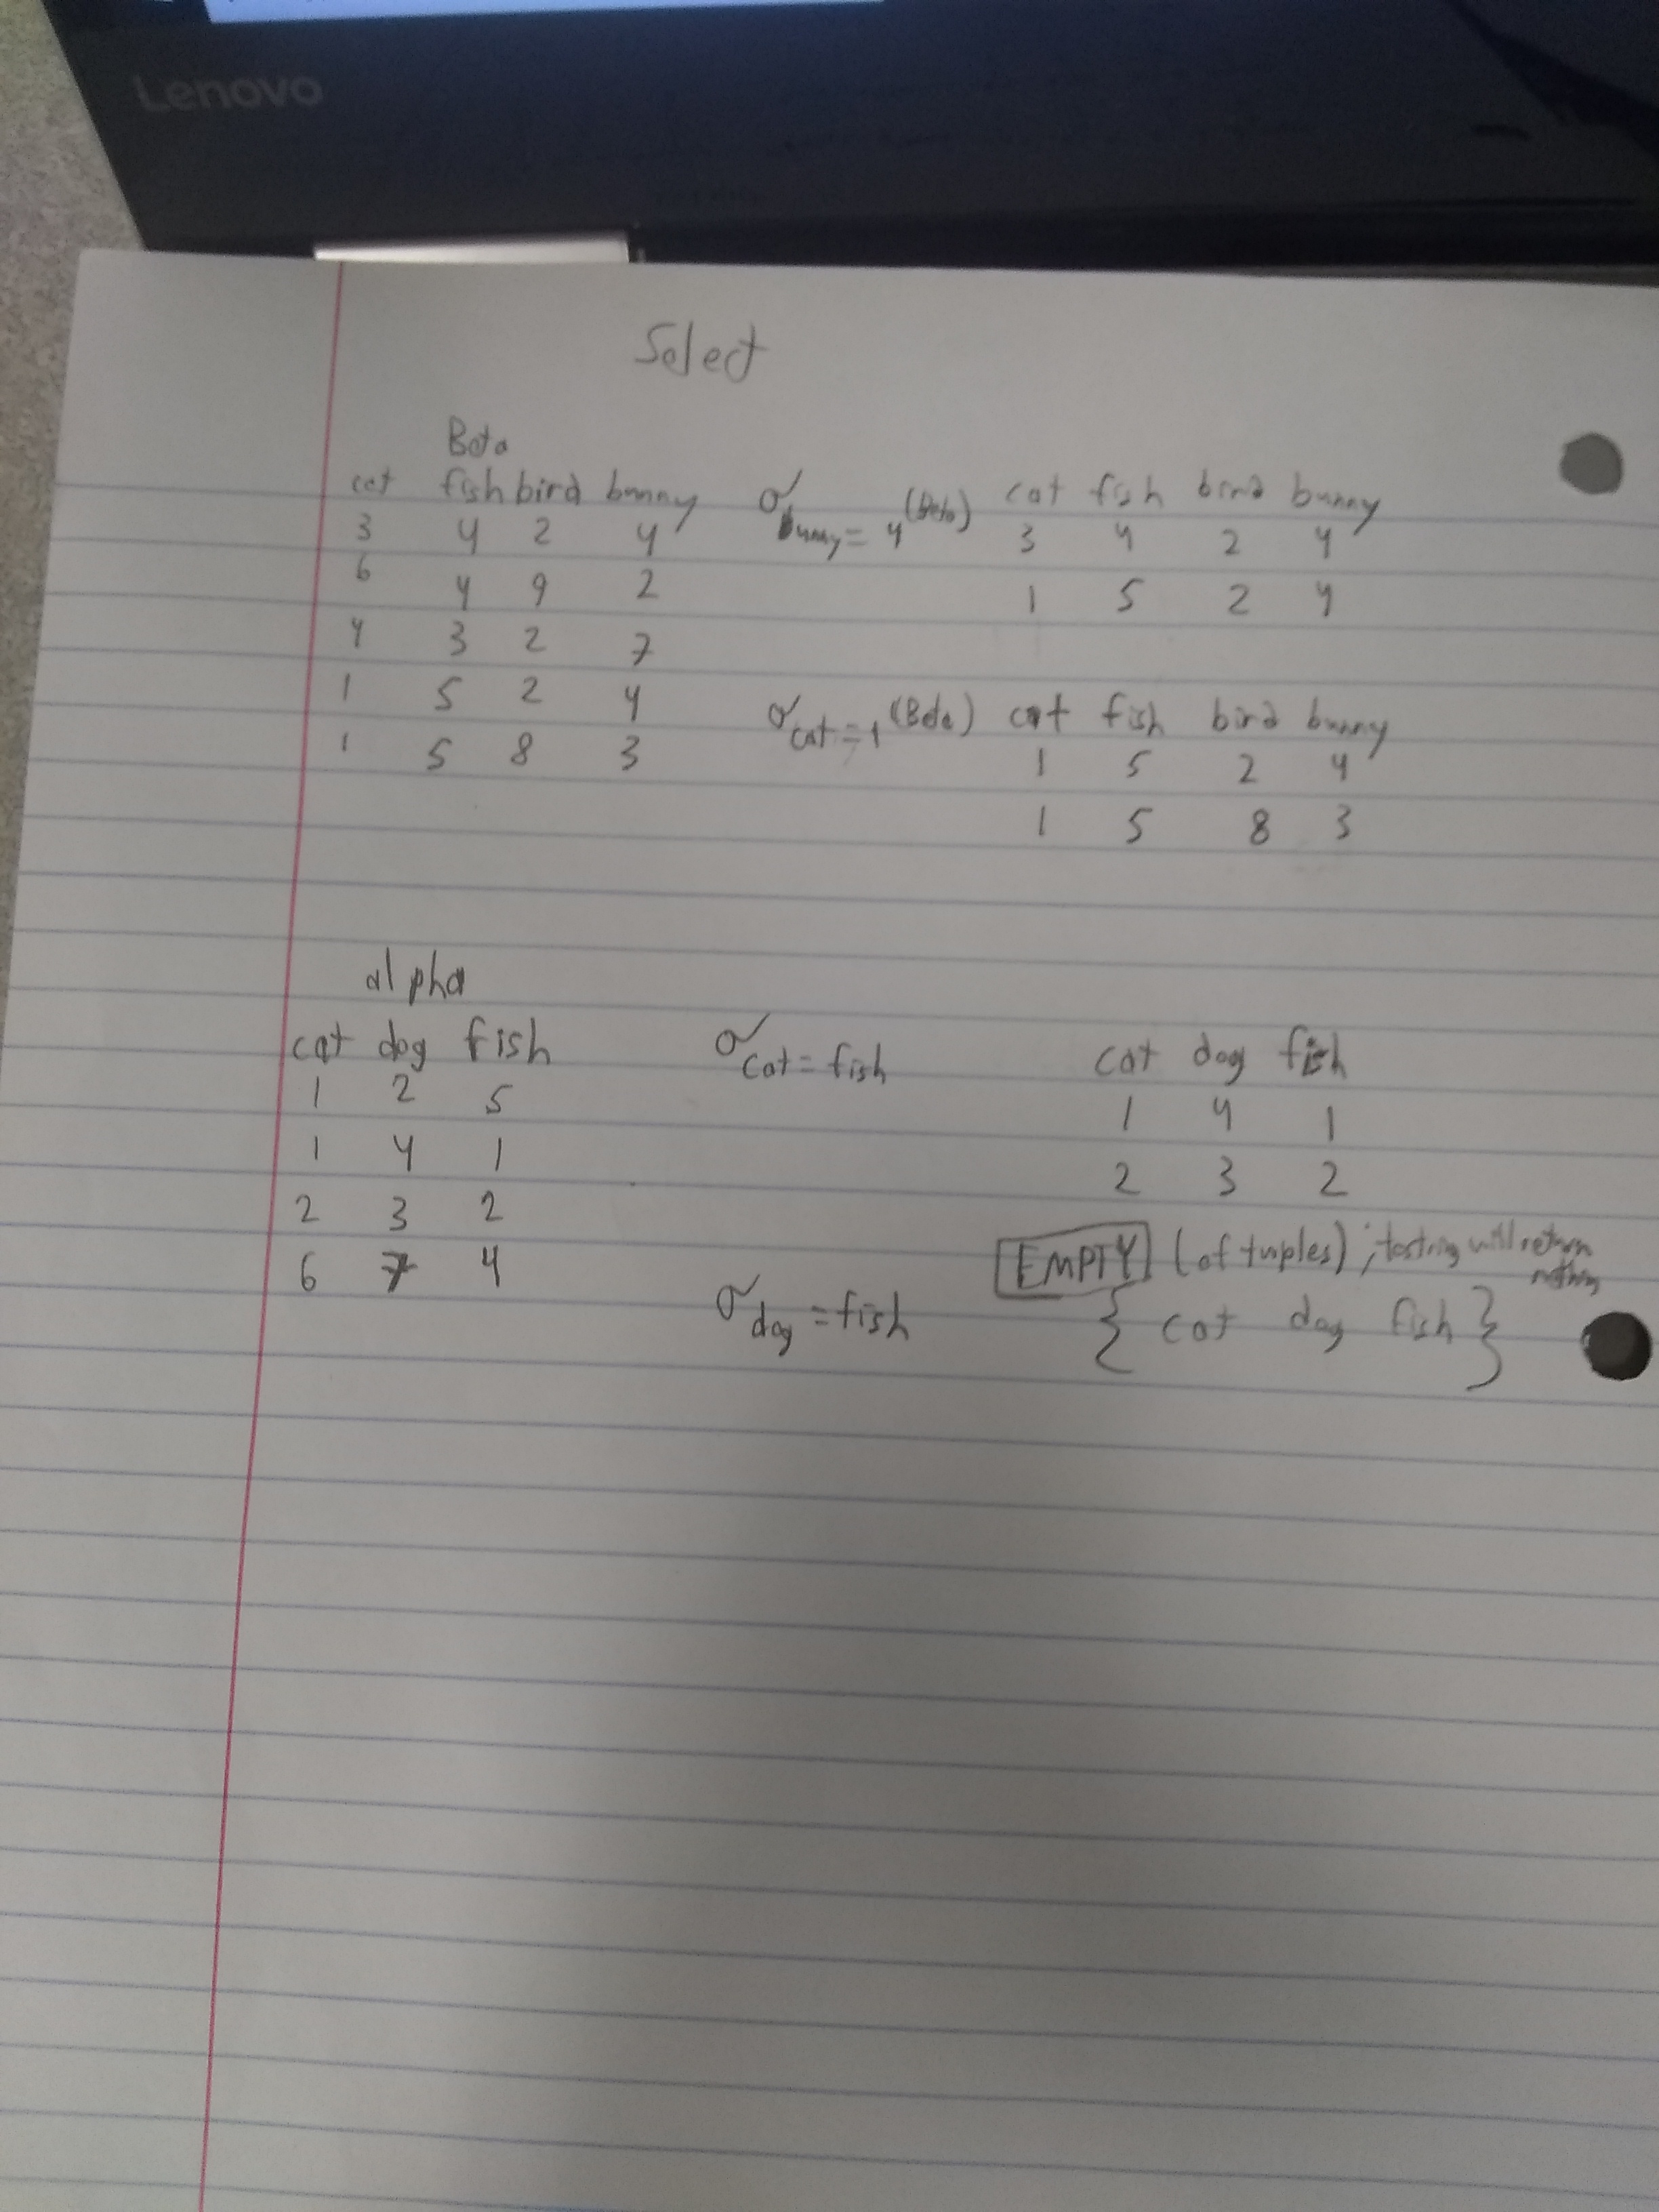 Lenovo
Select
Beta
cat fish bird bunny
3 4 2 4
6 4 9 2
4 3 2 7
1 5 2 4
1 5 8 3
σ bunny = 4 (Beta)
cat fish bird bunny
3 4 2 4
1 5 2 4
σ cat = 1 (Beta)
cat fish bird bunny
1 5 2 4
1 5 8 3
alpha
cat dog fish
1 2 5
1 4 1
2 3 2
6 7 4
σ cat = fish
cat dog fish
1 4 1
2 3 2
σ dog = fish
EMPTY (of tuples); tostring will return
nothing
{ cat dog fish }